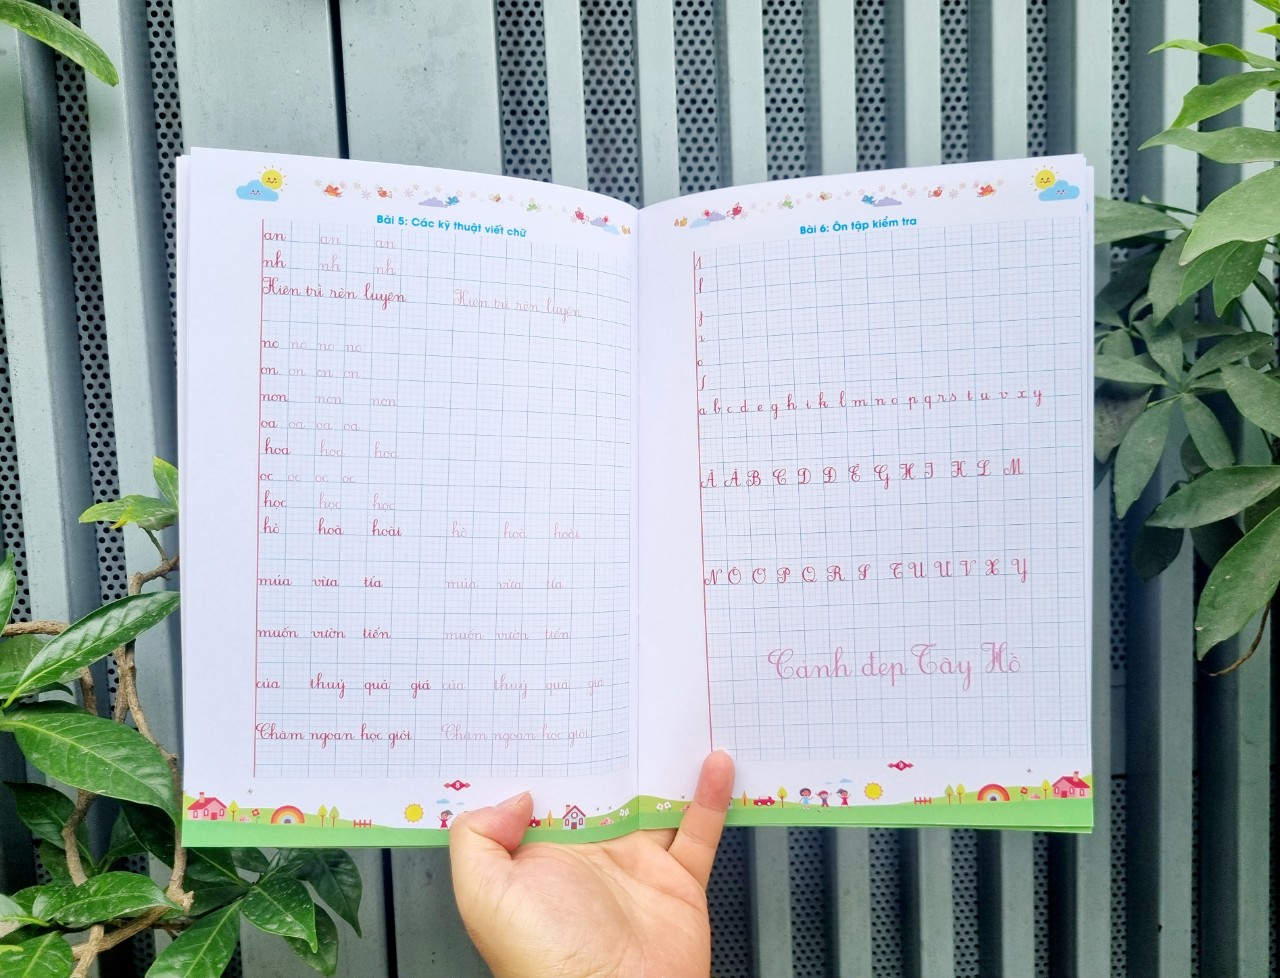 Bài 5: Các kỹ thuật viết chữ
an an an
nh nh nh
Kiên trì rèn luyện Kiên trì rèn luyện
no no no no
on on on on
non non non
oa oa oa oa
hoa hoa hoa
oc oc oc oc
học học học
hò hoà hoài hò hoà hoài
múa vừa tía múa vừa tía
muốn vườn tiến muốn vườn tiến
của thuỷ quả giá của thuỷ quả giá
Chăm ngoan học giỏi Chăm ngoan học giỏi
8
Bài 6: Ôn tập kiểm tra
a b c d e g h i k l m n o p q r s t u v x y
Ă Â B C D Đ E G H I K L M
N O O P Q R S T U U V X Y
Cảnh đẹp Tây Hồ
9